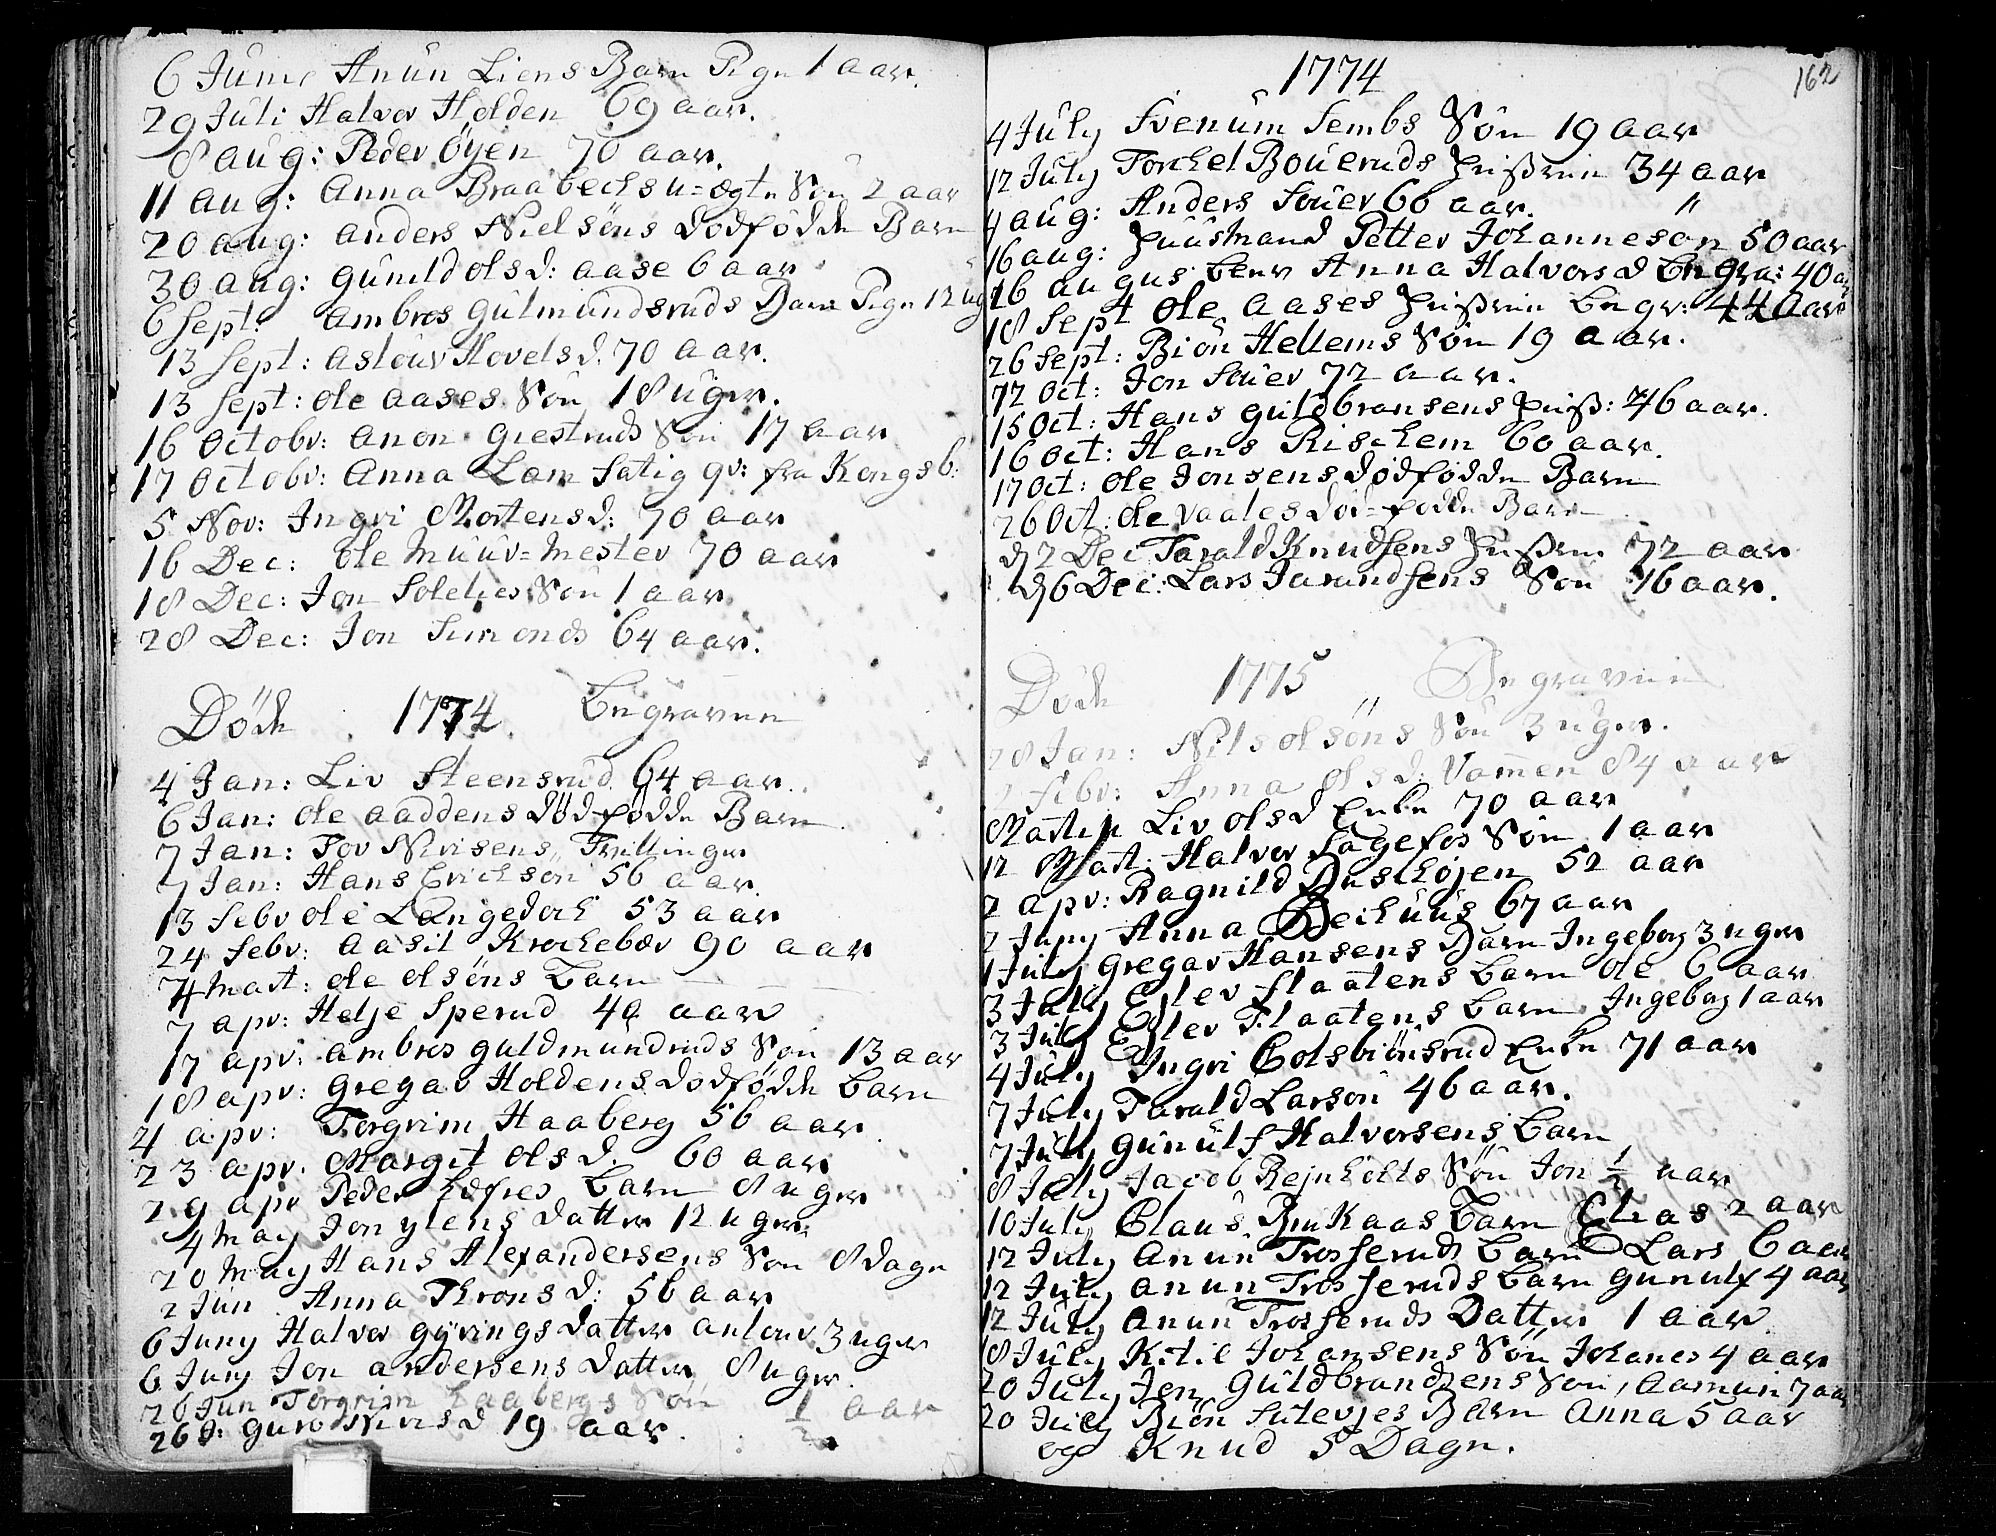 6 Junÿ Anun Liens Barn Pige 1 aar.
29 Juli Halvor Holden 69 aar.
8 aug: Peder Öÿen 70 aar.
11 aug: Anna Braabechs u=ægte Sön 2 aar
20 aug: anders Nielsöns dödfödde Barn
30 aug: gunild olsd: aase 6 aar
6 Sept: Ambros gulmundsruds Barn Pige 12 ug
13 Sept: aslouv Hovelsd. 70 aar.
13 Sept: ole aases Sön 18 uger.
16 Octobr: anon giestruds Sön 17 aar
17 Octobr: Anna Lam fatig qv: fra Kongsb:
5 Nov: Ingri Mortensd: 70 aar
16 Dec: ole Muur=Mester 70 aar
18 Dec: Jon Solelies Sön 1 aar
28 Dec: Jon Simonds 64 aar.
Döde 1774. Begravene
4 Jan: Liv Steensrud 64 aar.
6 Jan: ole aaddens dödfödde Barn
7 Jan: Tov Nirisens Trillinger
7 Jan: Hans Erichson 56 aar.
13 Febr ole Langedoch 53 aar
24 Febr: aasil Krochebær 90 aar
7 Mart: ole olsöns Barn
7 apr: Helje Sperud 49 aar
17 apr: ambros guldmundruds Sön 13 aar
18 apr: gregar Holdens dödfödde Barn
21 apr: Torgrim Haaberg 56 aar
23 apr: Margit olsd. 60 aar
29 apr Peder Barn 8 uger
4 May Jon ylens datter 12 uger
20 May Hans Alexandersens Sön 8 dage
2 Jun Anna Thronsd: 56 aar
6 Juny Halvor gÿrings datter anlouv 3 uger
6 Juny Jon andersens datter 8 uger.
26 Jun Torgrim Haabergs Sön 1/2 aar
26 J: guro Nirisd 19 aar.
1774
162
4 July Svenum Sembs Sön 19 aar
12 July Torchel Boueruds Hustrue 34 aar
4 aug: Anders Souer 60 aar.
16 aug: Huusmand Petter Johanneson 50 aar
16 augus: blev Anna Halvorsd begra: 40 a
18 Sept ole aases Hustrue begr: 44 aar
26 Sept: Biön Hellems Sön 19 aar.
12 Oct: Jon Souer 72 aar.
15 Oct: Hans guldbransens Hust: 46 aar.
16 Oct: Hans Rischem 60 aar.
17 Oct: ole Jonsens dödfödde Barn
26 Oct: ole vaales död=födde Barn
D 2 Dec Tarald Knudsens Hustrue 72 aar
D 6 Dec: Lars Jarandsens Sön 16 aar.
Döde 1775 Begravene
28 Jan: Nils olsöns Sön 3 uger.
2 Febr: Anna olsd: Vammen 84 aar
Martij Liv olsd Enke 70 aar
12 Mart: Halvor Sagefos Sön 1 aar
2 apr: Ragnild Buschöjen 52 aar
2 Juny Anna Bechuus 67 aar
1 July gregar Hansens Barn Ingeborg 3 uger
3 July Eÿlev flaatens Barn ole 6 aar
3 July Eÿlev Flaatens Barn Ingeborg 1 aar
4 July Ingri Colsbiönsrud Enke 71 aar
7 July Tarald Larson 46 aar.
7 July gunulf Halvorsens Barn
8 July Jacob Rejnholts Sön Jon 1/2 aar
10 July Claus Barn Elias 2 aar
12 July anun Trosseruds Barn Lars 6 aar
12 July anun Trosseruds Barn gunulf 4 aar
12 July anun Trosseruds Datter 1 aar
18 July Kitil Johansens Sön Johanes 4 aar
20 July Jon guldbrandsens Sön, Aamun 7 aar
20 July Biön Barn Anna 5 aar
og Knud 5 Dage.